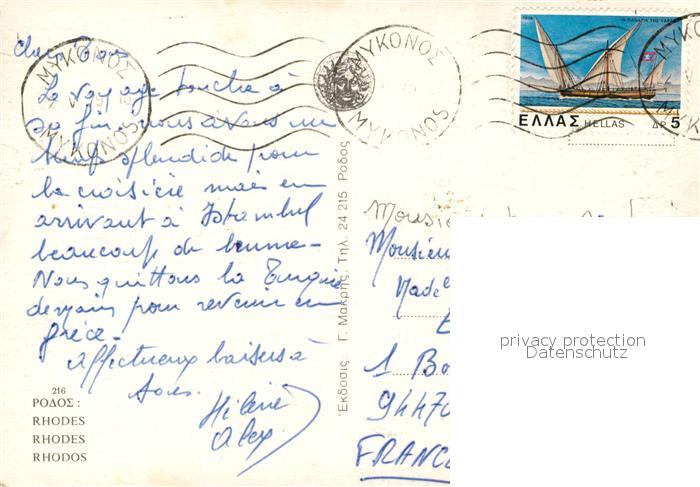 Le voyage touche à
sa fin. nous avons un
temps splendide pour
la croisière mais en
arrivant à Istambul
beaucoup de brume -
Nous quittons la Turquie
demain pour revenir en
grèce -
affectueux baisers à
tous.
Hélène
alex
216
ΡΟΔΟΣ :
RHODES
RHODES
RHODOS
Ἔκδοσις Γ. Μακρῆς. Τηλ. 24 215 Ρόδος
ΜΥΚΟΝΟΣ
MYKONOS
ΜΥΚΟΝΟΣ
MYKONOS
1978
ΕΛΛΑΣ HELLAS ΔΡ 5
Monsieur
Monsieur
Made
1 Bo
94470
FRANC
privacy protection
Datenschutz